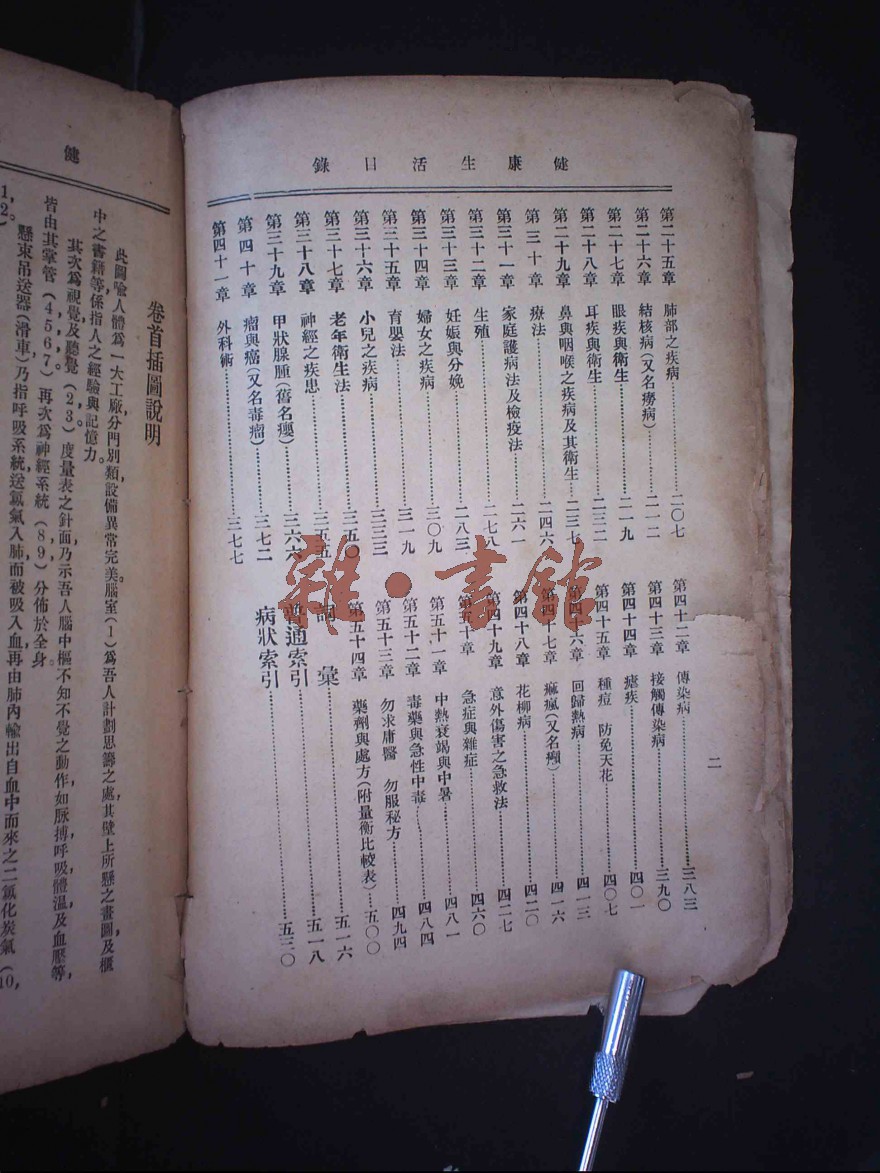 健康生活目錄
二
第二十五章 肺部之疾病 二〇七
第二十六章 結核病(又名癆病) 二一二
第二十七章 眼疾與衛生 二一九
第二十八章 耳疾與衛生 二三二
第二十九章 鼻與咽喉之疾病及其衛生 二三七
第三十章 療法 二四六
第三十一章 家庭護病法及檢疫法 二六一
第三十二章 生殖 二七八
第三十三章 妊娠與分娩 二八三
第三十四章 婦女之疾病 三〇九
第三十五章 育嬰法 三一九
第三十六章 小兒之疾病 三三三
第三十七章 老年衛生法 三五〇
第三十八章 神經之疾患 三五五
第三十九章 甲狀腺腫(舊名癭) 三六六
第四十章 瘤與癌(又名毒瘤) 三七二
第四十一章 外科術 三七七
第四十二章 傳染病 三八三
第四十三章 接觸傳染病 三九〇
第四十四章 瘧疾 四〇一
第四十五章 種痘 防免天花 四〇七
第四十六章 回歸熱病 四一三
第四十七章 痲瘋(又名癩) 四一六
第四十八章 花柳病 四二〇
第四十九章 意外傷害之急救法 四二七
第五十章 急症與雜症 四六〇
第五十一章 中熱衰竭與中暑 四八一
第五十二章 毒藥與急性中毒 四八四
第五十三章 勿求庸醫 勿服秘方 四九四
第五十四章 藥劑與處方(附量衡比較表) 五〇〇
詞彙 五一六
普通索引 五一八
病狀索引 五三〇
雜·書館
健
卷首插圖說明
此圖喻人體爲一大工廠,分門別類,設備異常完美。腦室(1)爲吾人計劃思籌之處,其壁上所懸之畫圖及櫃
中之書籍等,係指人之經驗與記憶力。
其次爲視覺及聽覺(2,3)。度量表之針面,乃示吾人腦中樞不知不覺之動作,如脈搏,呼吸,體溫,及血壓等,
皆由其掌管(4,5,6,7)。再次爲神經系統(8,9),分佈於全身。
懸束吊送器(滑車)乃指呼吸系統,送氧氣入肺而被吸入血,再由肺內輸出自血中而來之二氧化炭氣(10,